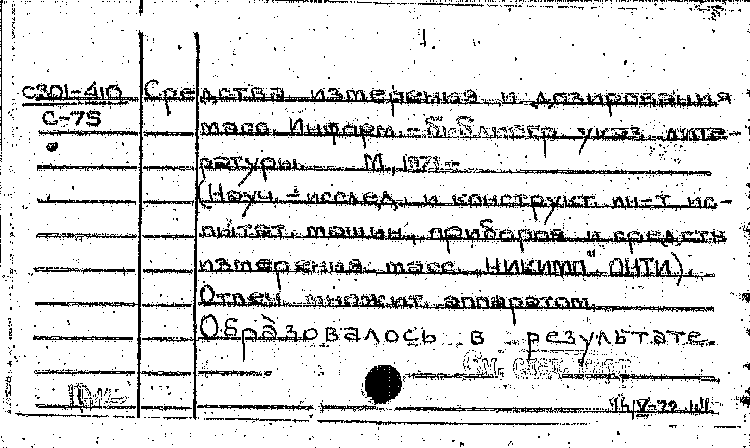 С301-410 Средства измерения и дозирования
С-75
масс. Информ.-библиогр. указ. лите-
ратуры. М., 1971-
(Науч.-исслед. и конструкт. ин-т ис-
пытат. машин, приборов и средств
измерения масс. НИКИМП" ОНТИ).
Отпеч. множит. аппаратом.
Образовалось в результате
См.